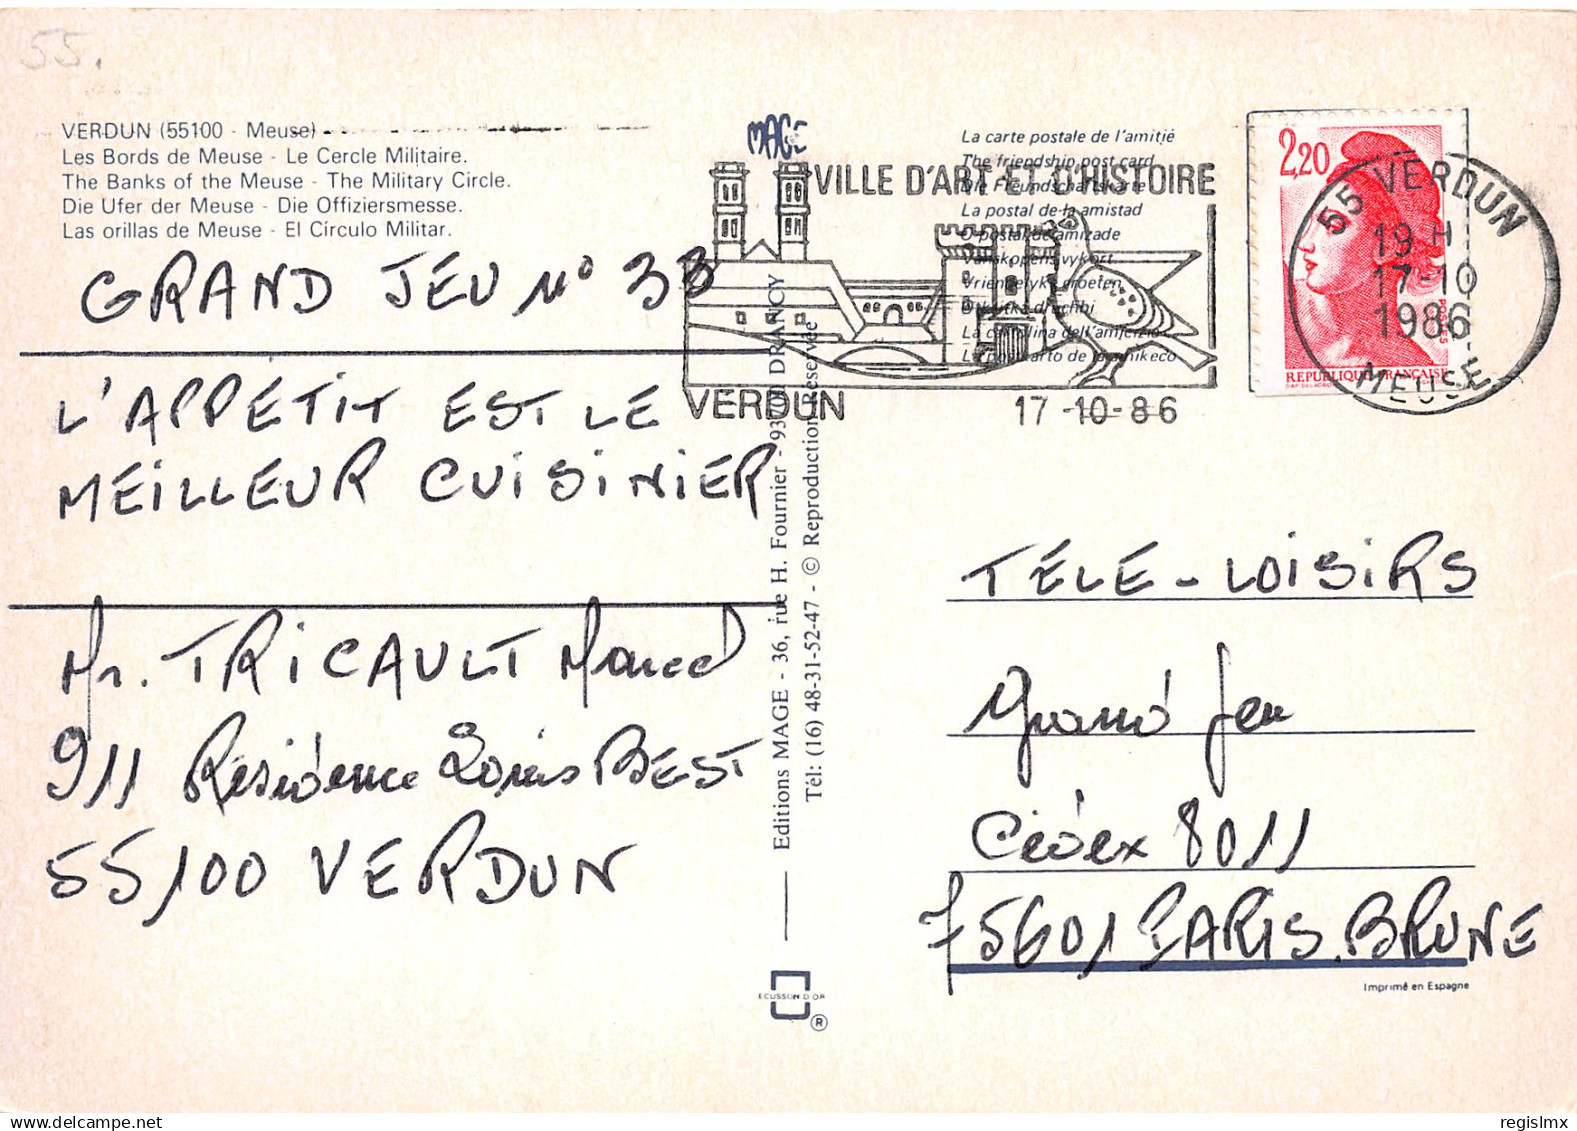 55.
VERDUN (55100 - Meuse)
Les Bords de Meuse - Le Cercle Militaire.
The Banks of the Meuse - The Military Circle.
Die Ufer der Meuse - Die Offiziersmesse.
Las orillas de Meuse - El Círculo Militar.
GRAND JEU N° 33
L'APPÉTIT EST LE
MEILLEUR CUISINIER
Mr. TRICAULT Marcel
911 Résidence Louis BEST
55100 VERDUN
MAGE
Editions MAGE - 36, rue H. Fournier - 93700 DRANCY
Tél: (16) 48-31-52-47 - © Reproduction Réservée
ECUSSON D'OR
®
La carte postale de l'amitié
The friendship post card
Die Freundschaftskarte
La postal de la amistad
O postal de amizade
Vriendelyke groeten
La cartolina dell'amicizia
VILLE D'ART ET D'HISTOIRE
VERDUN
17-10-86
2,20
POSTES
REPUBLIQUE FRANÇAISE
55 VERDUN
19 H
17-10
1986
MEUSE
TÉLÉ-LOISIRS
Grand Jeu
Cédex 8011
75601 PARIS.BRUNE
Imprimé en Espagne
regislmx